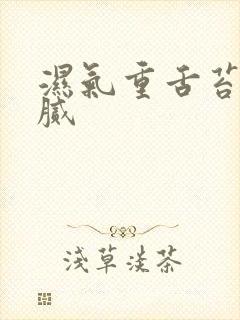 濕氣重舌苔
膩
淺草淡茶